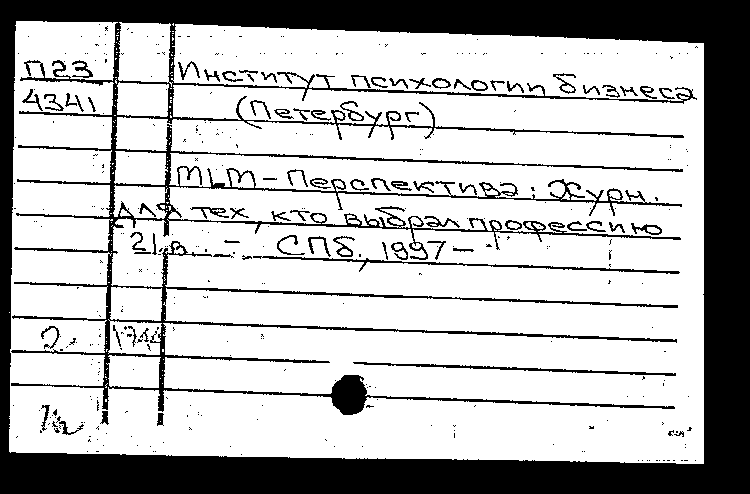 П23 Институт психологии бизнеса
4341 (Петербург)
MLM – Перспектива : Журн.
для тех, кто выбрал профессию
21 в. – СПб., 1997 –
2 1744